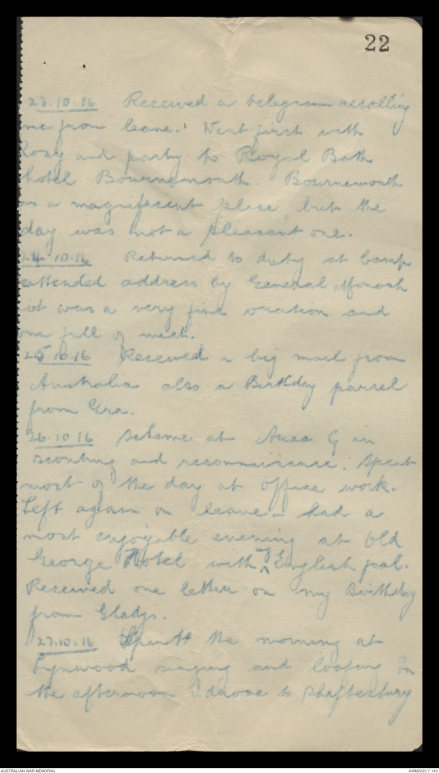 22
23.10.16 Received a telegram recalling
me from leave. Went first with
Rosy and party to Royal Bath
hotel Bournemouth. Bournemouth
is a magnificent place, but the
day was not a pleasant one.
24.10.16 Returned to duty at Camp
attended address by General Monash
it was a very fine oration and
one full of meat.
25.10.16 Received a big mail from
Australia also a Birthday parcel
from Gra.
26.10.16 Scheme at Area G in
scouting and reconnaissance. Spent
most of the day at office work.
Left again on leave & had a
most enjoyable evening at Old
George Hotel with my English pal.
Received one letter on my Birthday
from Gladys.
27.10.16 Spent the morning at
Lynwood singing and loafing In
the afternoon I drove to Shaftesbury
AUSTRALIAN WAR MEMORIAL